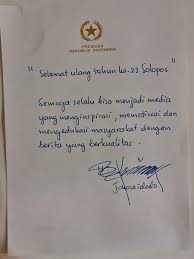 PRESIDEN
REPUBLIK INDONESIA
" Selamat ulang tahun ke-23 Solopos "
Semoga selalu bisa menjadi media
yang menginspirasi, memotivasi dan
mengedukasi masyarakat dengan
berita yang berkualitas.
Joko Widodo